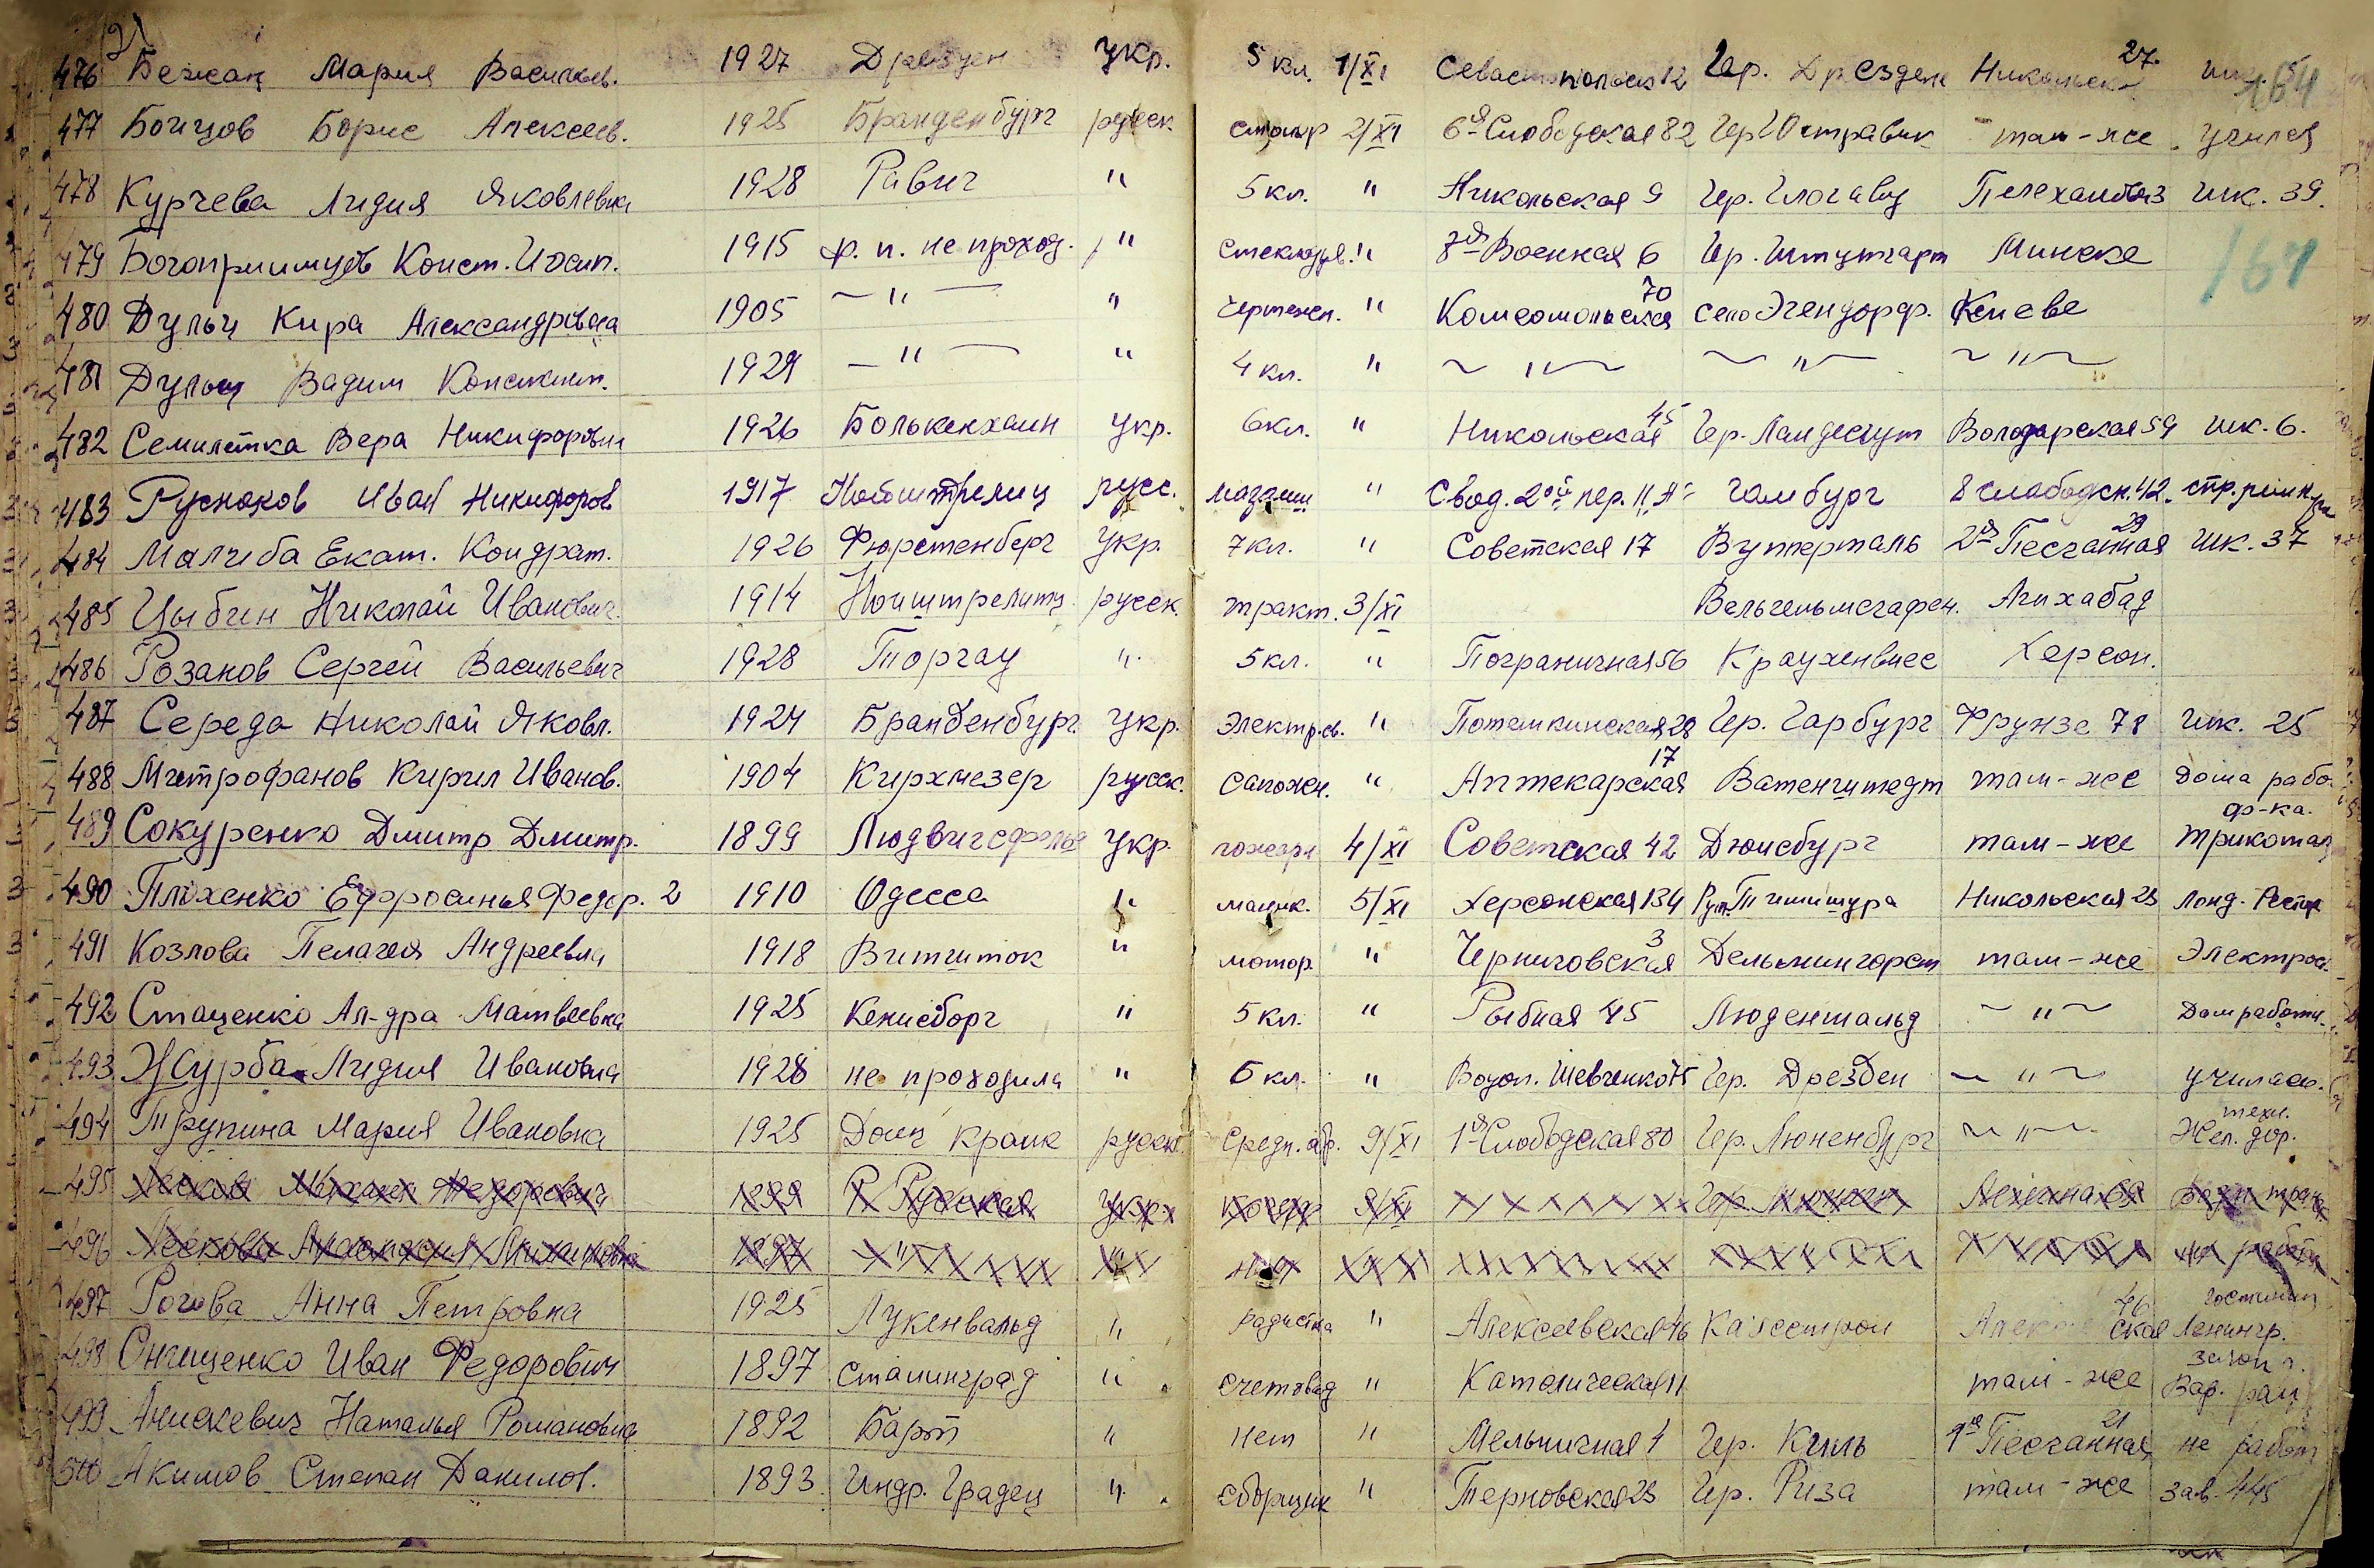 21
476 Бежан Мария Васильев. 1927 Дрезден укр. 5 кл. 1/XI Севастопольск 12 Гер. Дрезден Никольск 27 шк.
164
477 Боицов Борис Алексеев. 1925 Бранденбург русск. столяр 2/XI 6я Слободская 82 Гер там-же училс
478 Курчева Лидия Яковлевна 1928 Равич " 5 кл. " Никольская 9 Гер. Глогаву шк. 39.
479 Богоприимцев Конст. Иосип. 1915 ф. п. не проход. " " 7я Военная 6 Гер. Штутгарт Минске
164
480 Дульц Кира Александровна 1905 — " — " чертежн. " Комсомольская 70 село Эгендорф. Киеве
481 Дульц Вадим Константин. 1929 — " — " 4 кл. " ~ " ~ ~ " ~ ~ " ~
482 Семилетка Вера Никифоровн 1926 Болькенхаин укр. 6 кл. " Никольская 45 Гер. Ландесгут Володарская 59 шк. 6.
483 Русноков Иван Никифоров 1917 Нойштрелиц русс. " Свод. 2ой пер. 11 Гамбург 8 слабодск. 42.
484 Малчеба Екат. Кондрат. 1926 Фюрстенберг укр. 7 кл. " Советская 17 Вупперталь 2я Песчанная 29 шк. 37
485 Цыбин Николай Иванович. 1914 Ноиштрелитц русск. тракт. 3/XI Вельгельмсгафен. Ашхабад
486 Розанов Сергей Васильевич 1928 Торгау " 5 кл. " Пограничная 56 Краухенвиес Херсон.
487 Середа Николай Яковл. 1924 Бранденбург. укр. электр.св. " Потемкинская 28 Гер. Гарбург Фрунзе 78 шк. 25
488 Митрофанов Кирил Иванов. 1904 Кирхмезер русск. сапожн. " Аптекарская 17 Ватенштедт там-же дома рабо.
489 Сокуренко Дмитр Дмитр. 1899 Людвигсфельд укр. пожарн 4/XI Советская 42 Дюисбург там-же ф-ка. Трикотаж
490 Плахенко Ефросинья Федор. 2 1910 Одесса " 5/XI Херсонская 134 Никольская 23
491 Козлова Пелагея Андреевна 1918 Витшток " мотор " Черниговская 3 Дельменгорст там-же Электрос.
492 Стаценко Ал-дра Матвеевна 1925 Кенисборг " 5 кл. " Рыбная 45 Люденшальд ~ " ~ Дом работн.
493 Журба Лидия Ивановна 1928 не проходила " 6 кл. " Водоп. Шевченко Гер. Дрезден ~ " ~ училась.
494 Трупина Мария Ивановна 1925 Доич Кроик русск. Средн. обр. 9/XI 1я Слободская 80 Гер. Люненбург ~ " ~ техн. Жел. дор.
495 Лесков Михаил Федорович 1899 укр.
496 Лескова Анастасия 1897 "
497 Рогова Анна Петровна 1925 Лукенвальд " радистка " Алексеевская 46 46 ская Ленингр.
498 Онищенко Иван Федорович 1897 Сталинград " счетовод " Католическая 11 там-же Вар. рай
499 Анискевич Наталья Романовна 1892 Барт " нет " Мельничная 1 Гер. Киль 1я Песчанная 21 не работ
500 Акимов Степан Данилов. 1893 Индр. Градец " сборщик " Терновская 23 Гер. Риза там-же зав. 445